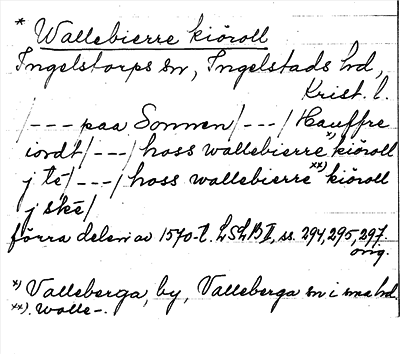 * Wallebierre kiöroll
Ingelstorps sn, Ingelstads hd,
Krist. l.
/--- paa Sonnen/---/Hauffre
iordt/---/hoss wallebierre x) kiöroll
j té/---/hoss wallebierre xx) kiöroll
j ské/
förra delen av 1570-t. LSLB II, ss. 294, 295, 297
orig.
x) Valleberga, by, Valleberga sn i sma hd.
xx). Wolle-.